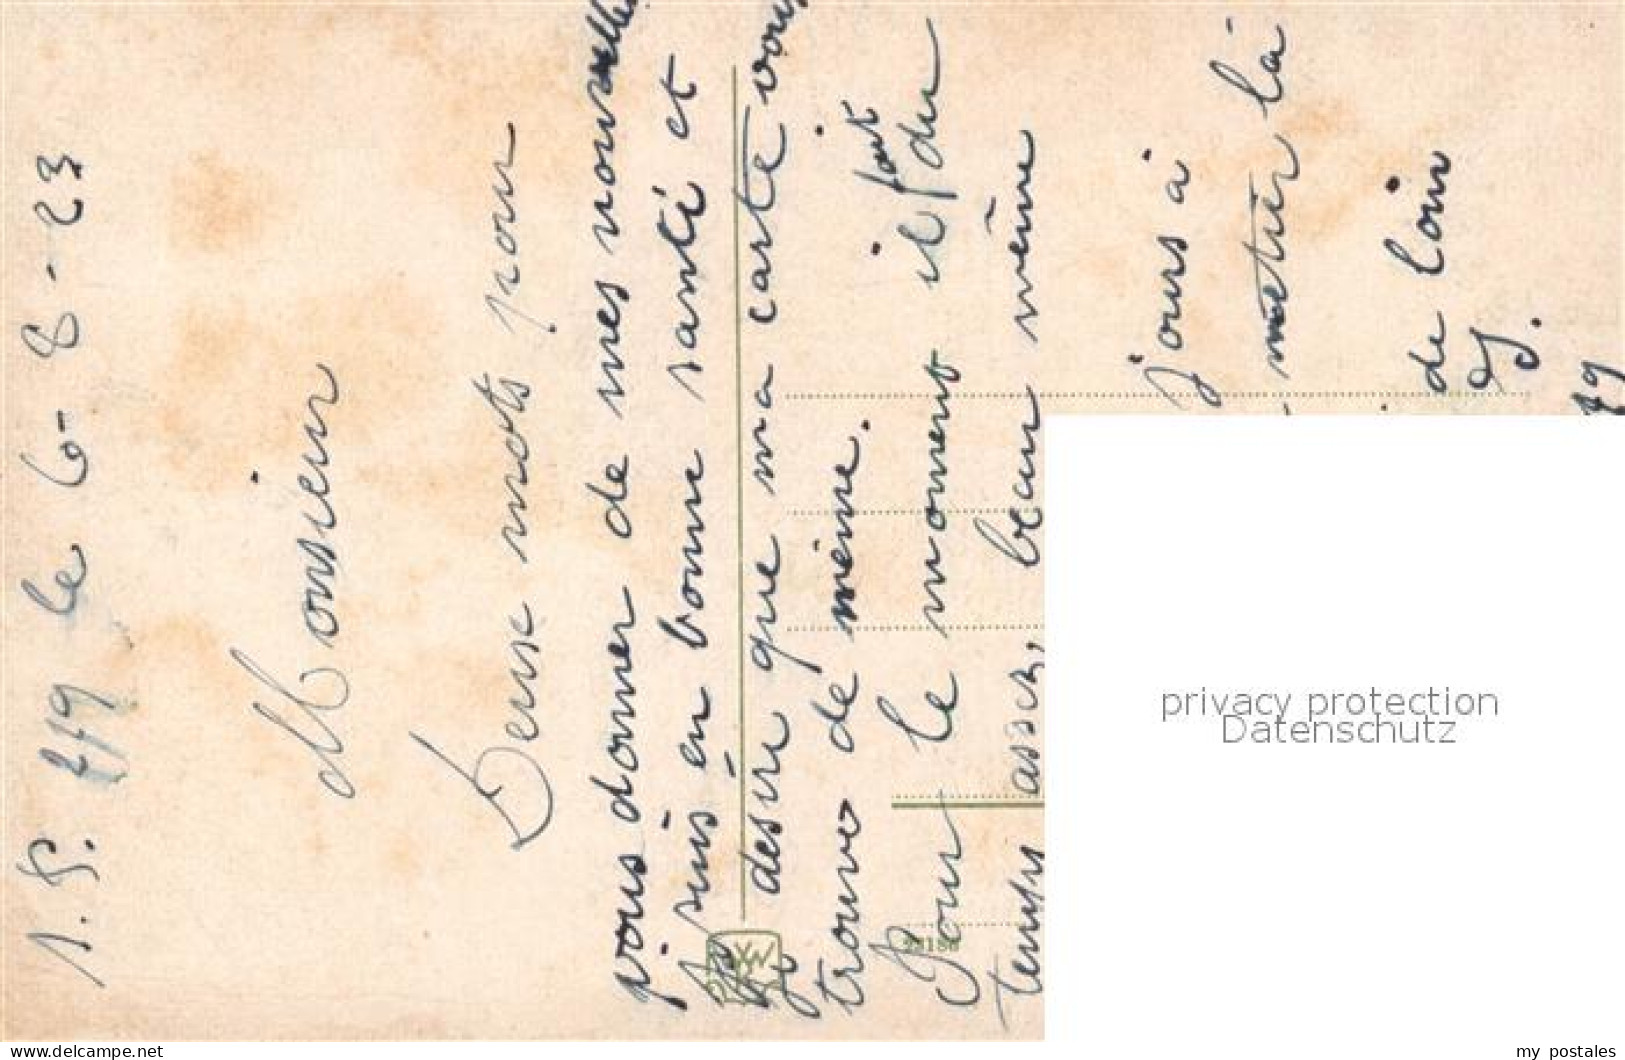 S.P. 219 le 6-8-23
Monsieur
Deux mots pour
vous donner de mes nouvelles
je suis en bonne santé et
je desire que ma carte vous
trouve de même.
Pour le moment il fait du
temps assez, beau même
jours à
metier là
de loin
29
23186
privacy protection
Datenschutz
www.delcampe.net
my_postales